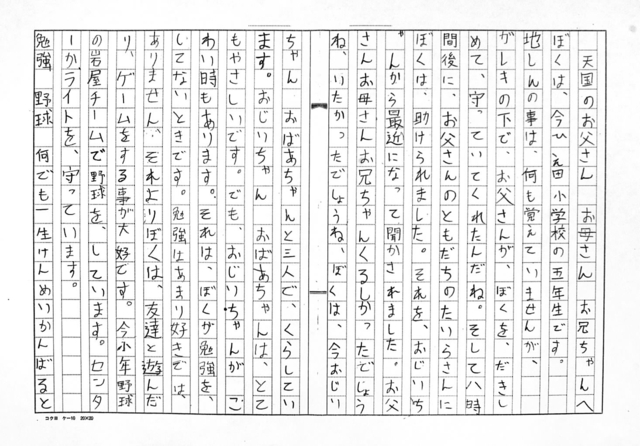 天国のお父さん お母さん お兄ちゃんへ
ぼくは、今ひえ田小学校の五年生です。
地しんの事は、何も覚えていませんが、
がレキの下で、お父さんが、ぼくを、だきし
めて、守っていてくれたんだね。そして八時
間後に、お父さんのともだちのたいらさんに
ぼくは、助けられました。それを、おじいち
ゃんから最近になって聞かされました。お父
さんお母さんお兄ちゃんくるしかったでしょう
ね、いたかったでしょうね、ぼくは、今おじい
ちゃん おばあちゃんと三人で、くらしてい
ます。おじいちゃん おばあちゃんは、とて
もやさしいです。でも、おじいちゃんが こ
わい時もあります。それは、ぼくが勉強を、
してないときです。勉強はあまり好きでは、
ありません。それよりぼくは、友達と遊んだ
り、ゲームをする事が大好です。今少年野球
の岩屋チームで野球を、しています。センタ
ーかライトを、守っています。
勉強 野球 何でも一生けんめいかんばると
コクヨ ケー10 20×20